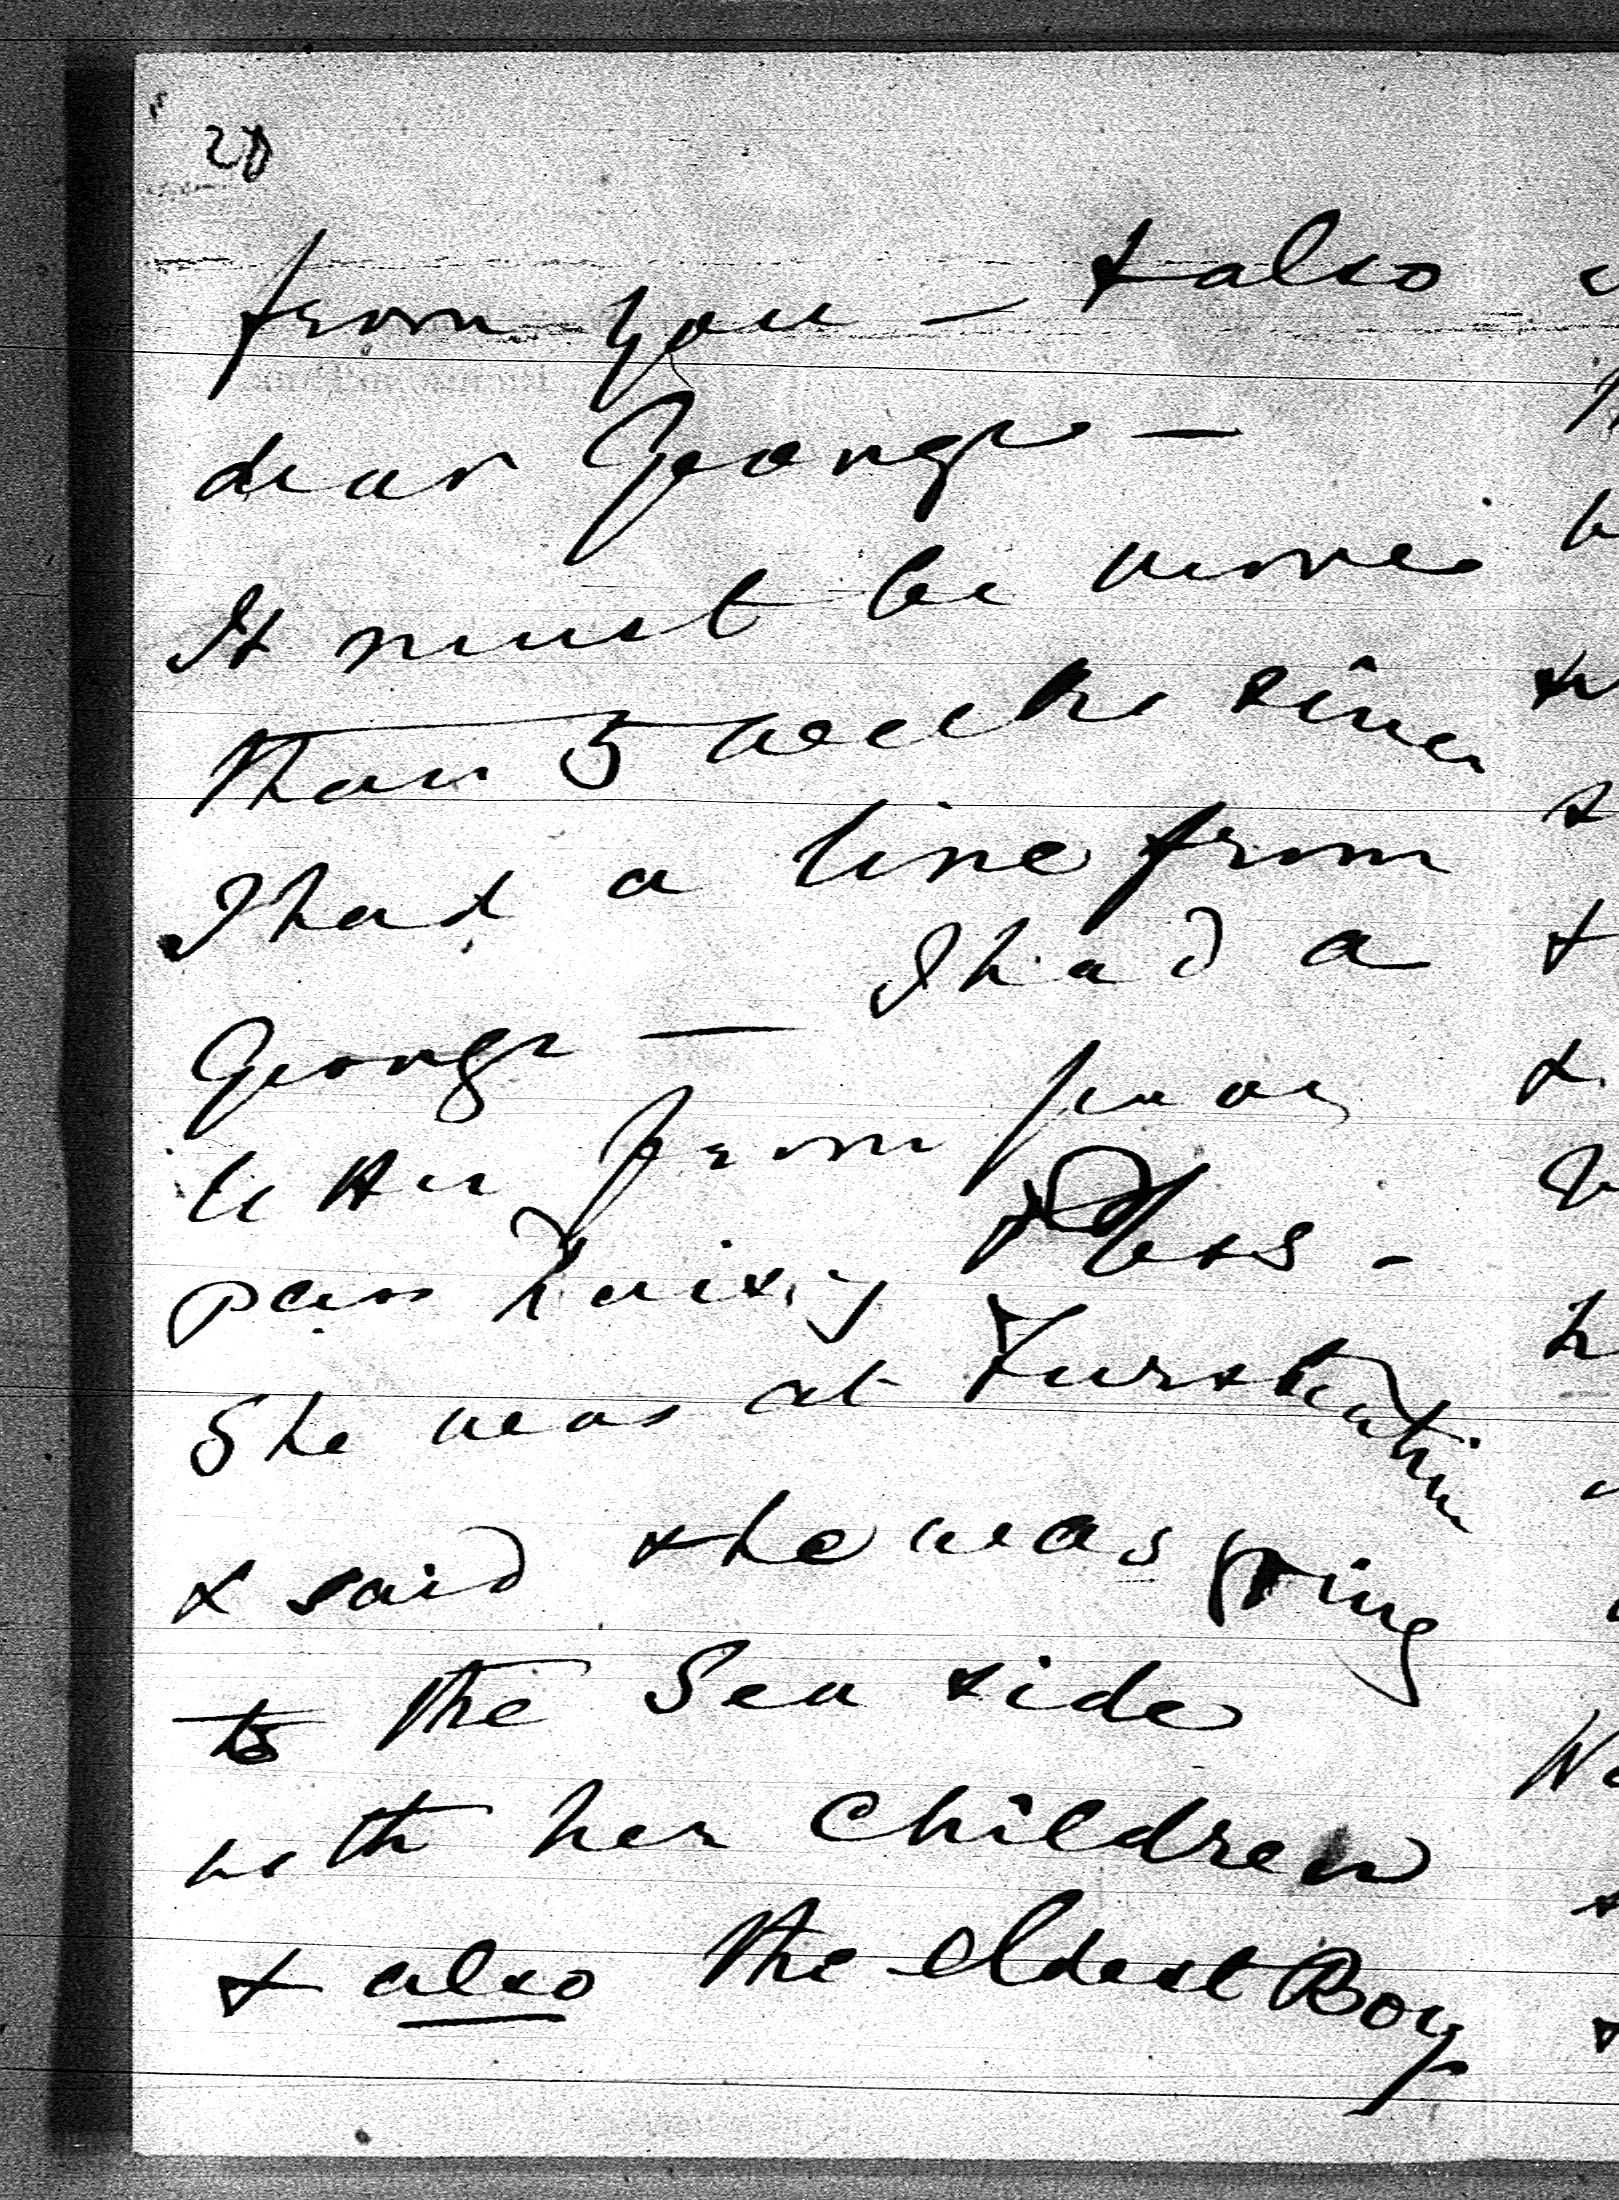 28
from you — & also
dear George —
It must be more
than 5 weeks since
I had a line from
George — I had a
letter from poor
dear Daisy Pless -
She was at Furstenstein
& said she was going
to the Sea side
with her children
& also the eldest Boy